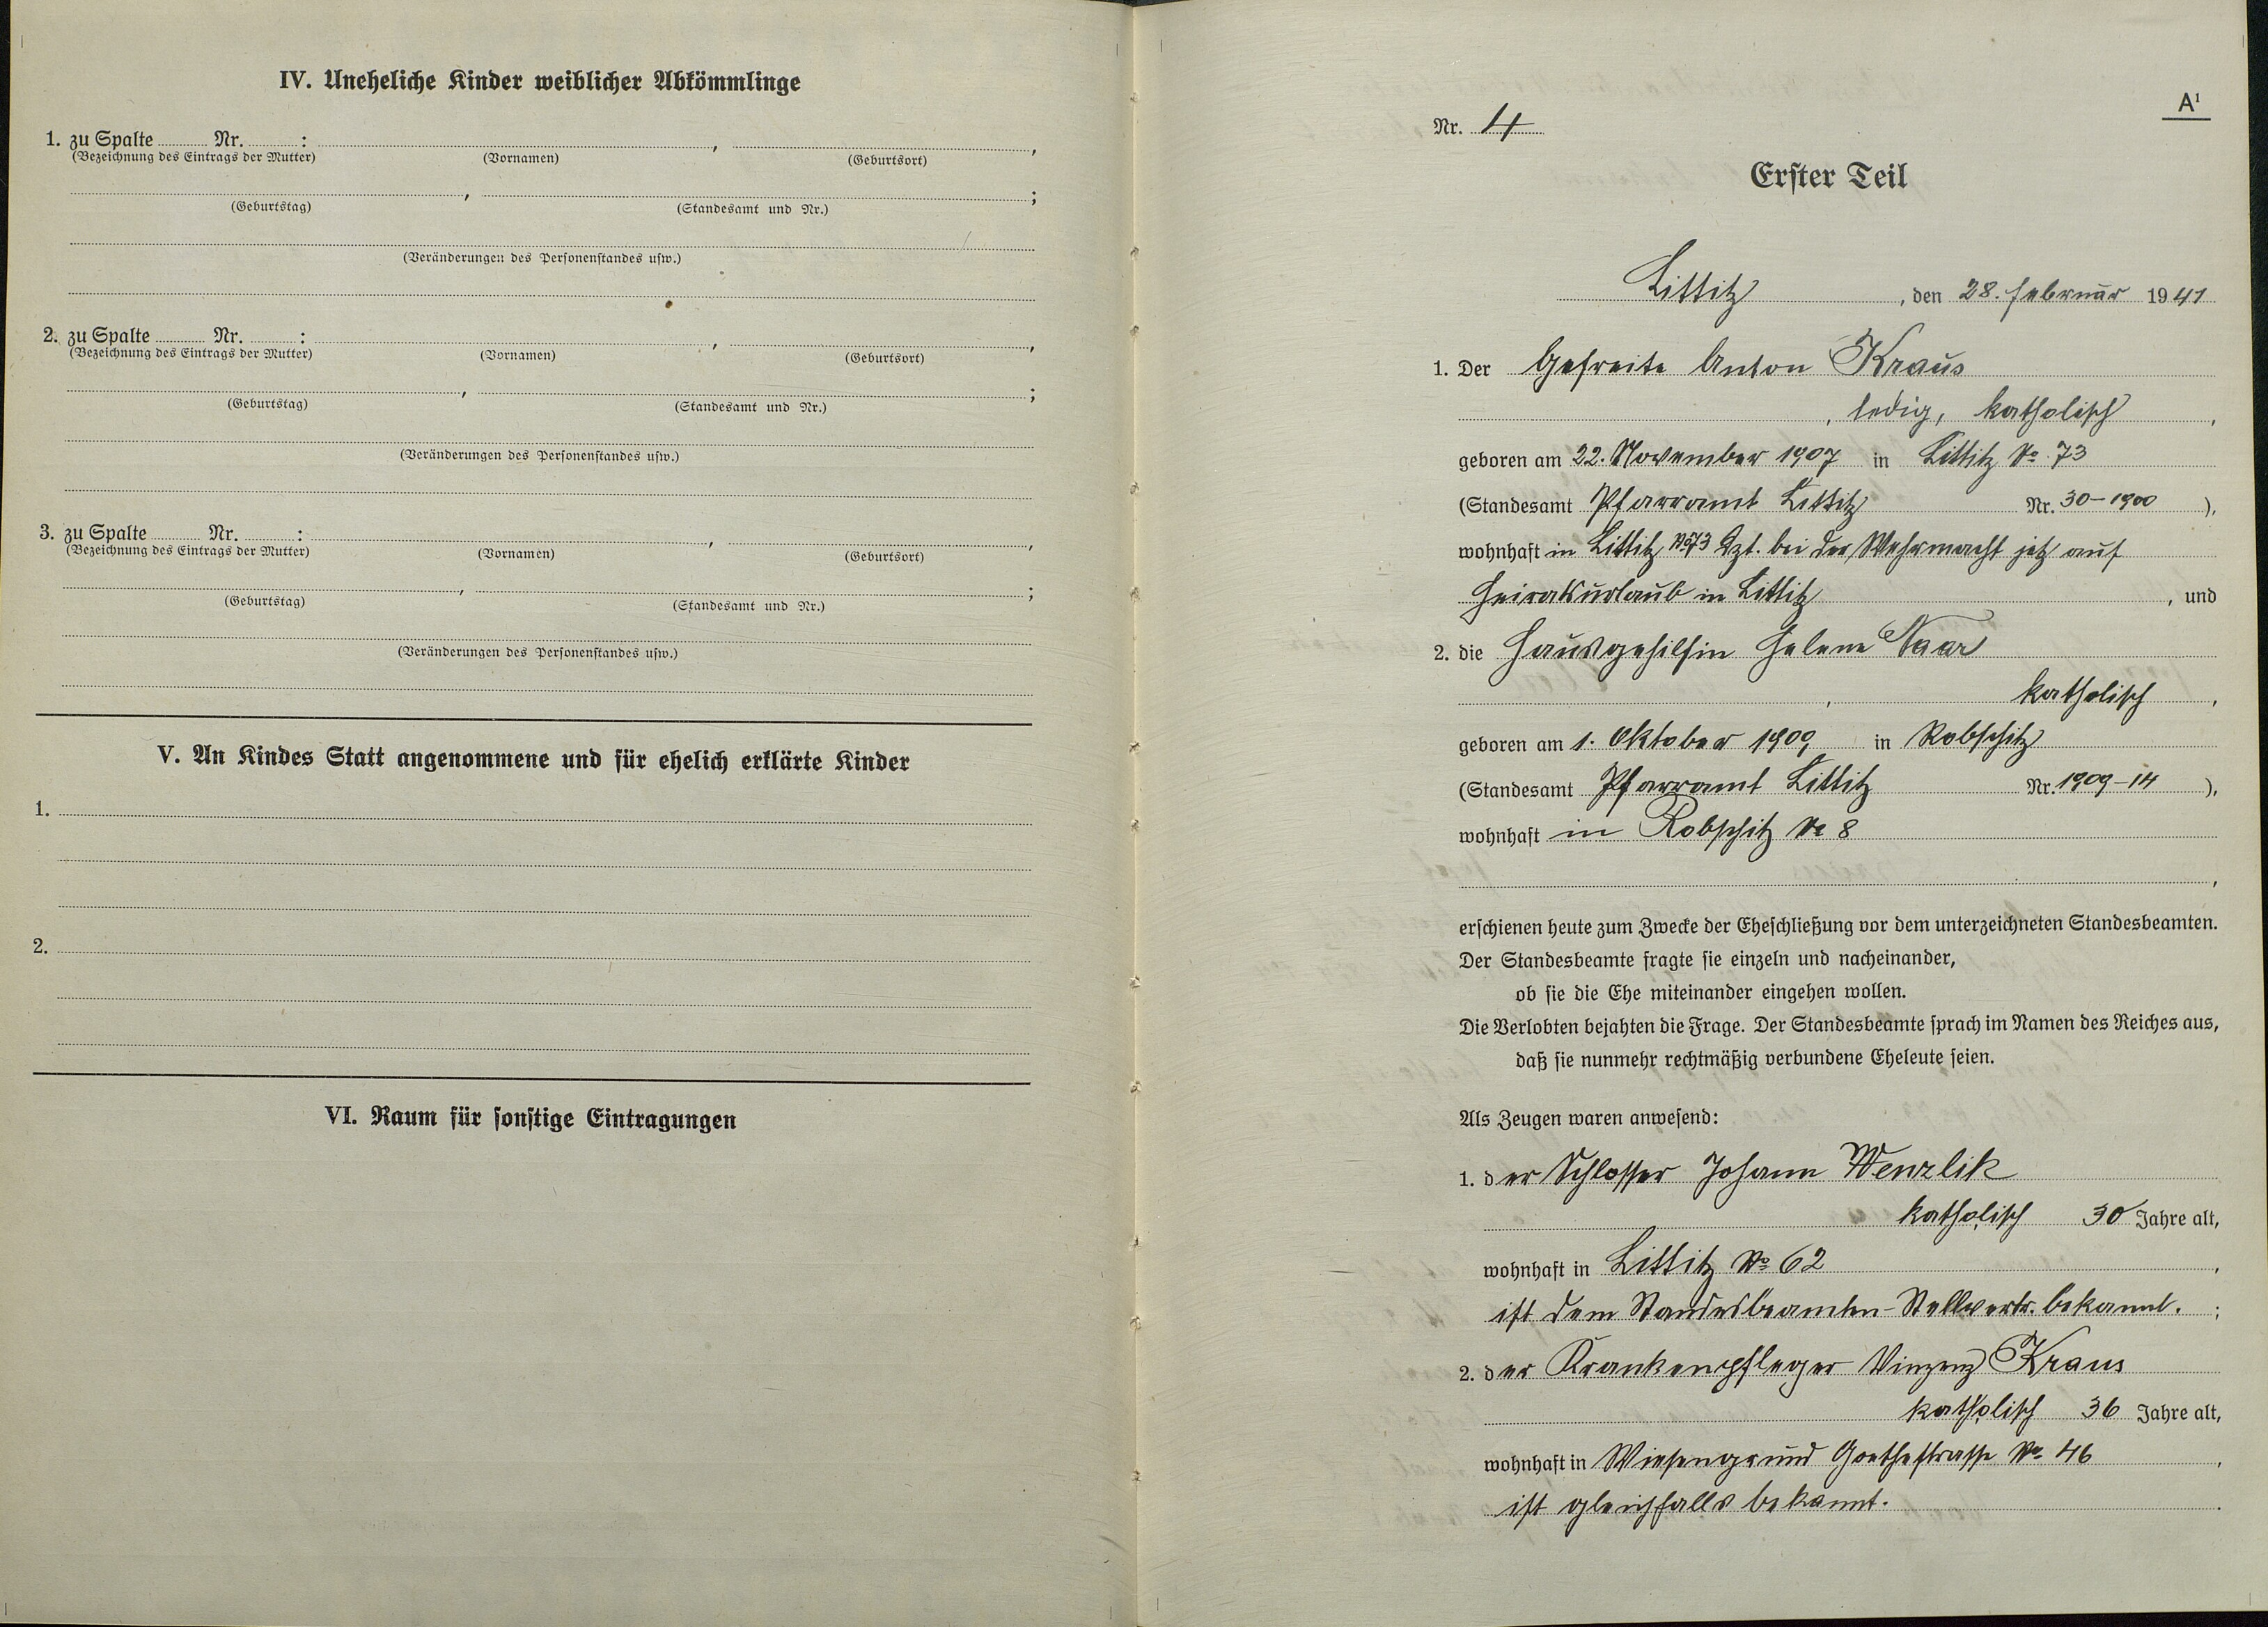 IV. Uneheliche Kinder weiblicher Abkömmlinge
1. zu Spalte ........ Nr. ........ : , ,
(Bezeichnung des Eintrags der Mutter) (Vornamen) (Geburtsort)
, ;
(Geburtstag) (Standesamt und Nr.)
(Veränderungen des Personenstandes usw.)
2. zu Spalte ........ Nr. ........ : , ,
(Bezeichnung des Eintrags der Mutter) (Vornamen) (Geburtsort)
, ;
(Geburtstag) (Standesamt und Nr.)
(Veränderungen des Personenstandes usw.)
3. zu Spalte ........ Nr. ........ : , ,
(Bezeichnung des Eintrags der Mutter) (Vornamen) (Geburtsort)
, ;
(Geburtstag) (Standesamt und Nr.)
(Veränderungen des Personenstandes usw.)
V. An Kindes Statt angenommene und für ehelich erklärte Kinder
1.
2.
VI. Raum für sonstige Eintragungen
A¹
Nr. 4
Erster Teil
Littitz, den 28. Februar 1941
1. Der Gefreite Anton Kraus
, ledig, katholisch,
geboren am 22. November 1907 in Littitz No 73
(Standesamt Pfarramt Littitz Nr. 30-1900),
wohnhaft in Littitz No 73 Dzt. bei der Wehrmacht jetz auf
Heiratsurlaub in Littitz, und
2. die Hausgehilfin Helene Naar
, katholisch,
geboren am 1. Oktober 1909 in Robschitz
(Standesamt Pfarramt Littitz Nr. 1909-14),
wohnhaft in Robschitz No 8
,
erschienen heute zum Zwecke der Eheschließung vor dem unterzeichneten Standesbeamten.
Der Standesbeamte fragte sie einzeln und nacheinander,
ob sie die Ehe miteinander eingehen wollen.
Die Verlobten bejahten die Frage. Der Standesbeamte sprach im Namen des Reiches aus,
daß sie nunmehr rechtmäßig verbundene Eheleute seien.
Als Zeugen waren anwesend:
1. der Schlosser Johann Wenzlik
katholisch 30 Jahre alt,
wohnhaft in Littitz No 62,
ist dem Standesbeamten-Stellvertr. bekannt. ;
2. der Krankenpfleger Vinzenz Kraus
katholisch 36 Jahre alt,
wohnhaft in Wiesengrund Goethestrasse No 46,
ist gleichfalls bekannt.